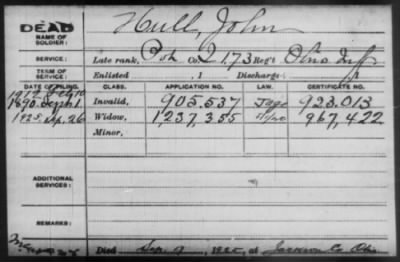 DEAD
NAME OF SOLDIER: Hull, John
SERVICE: Late rank, Co. 173 Reg't Ohio Inf
TERM OF SERVICE: Enlisted , 1 Discharged , 1
DATE OF FILING. CLASS. APPLICATION NO. LAW. CERTIFICATE NO.
1890 Sept 1 Invalid, 905.537 923.013
1925, 26 Widow, 1,237,355 967,422
Minor,
ADDITIONAL SERVICES:
REMARKS:
Died Sep. 9, 1925, at Jackson Co Ohio